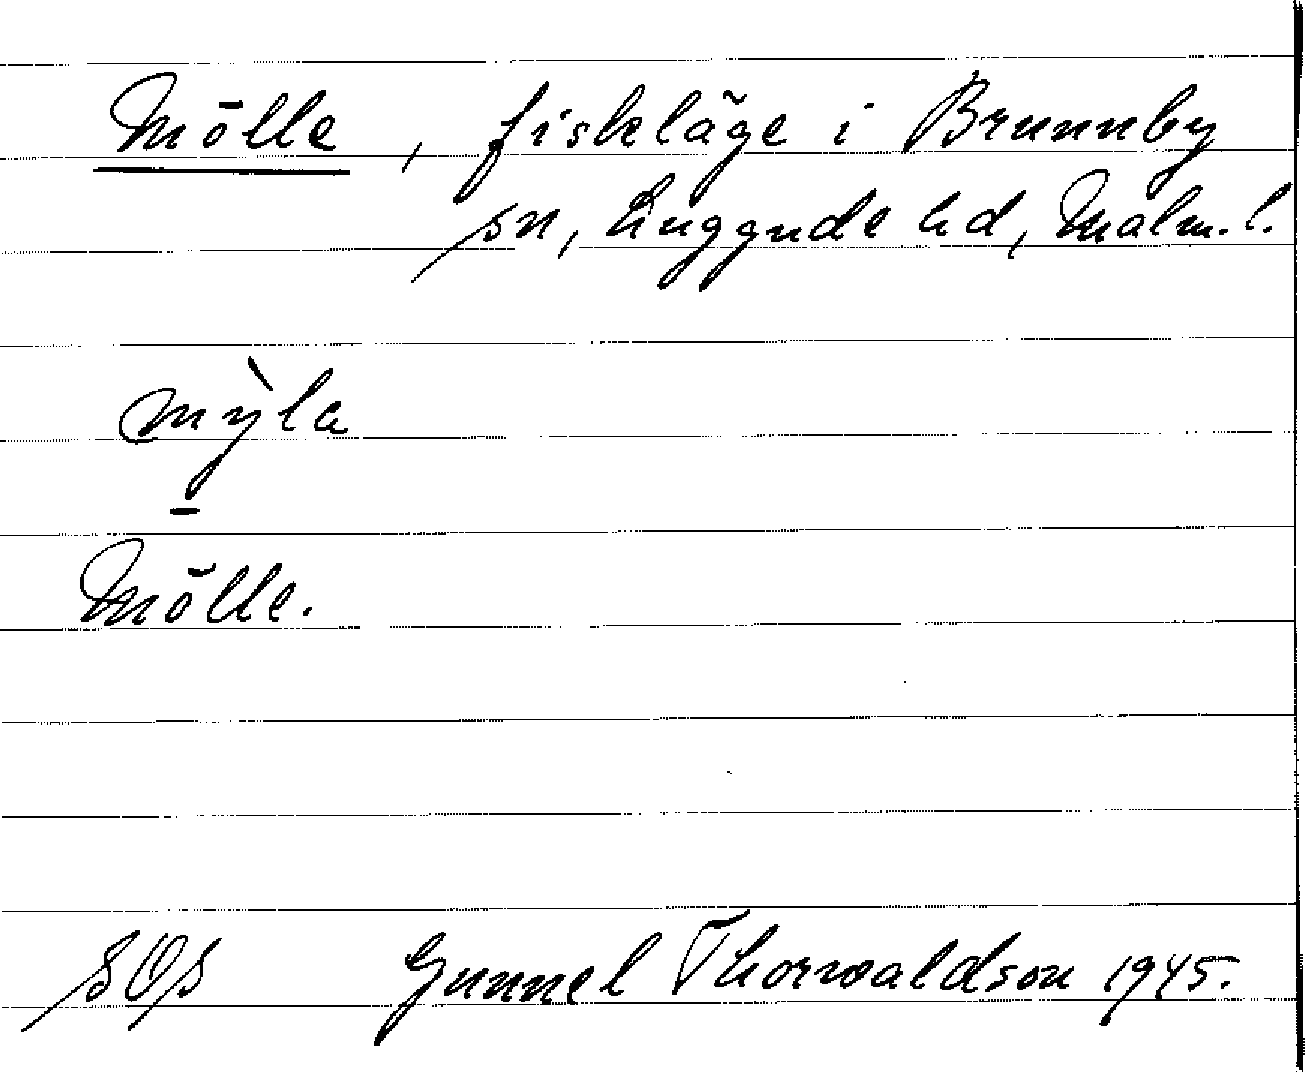 Mölle, fiskeläge i Brunnby
sn, Luggude hd, Malm. l.
mỳla
Mölle.
SOS Gunnel Thorwaldson 1945.